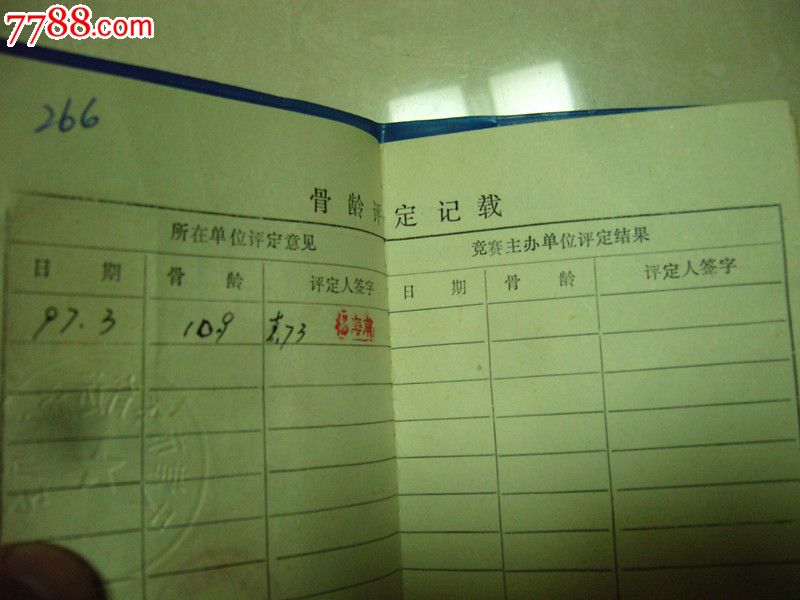 7788.com
266
骨龄评定记载
所在单位评定意见 竞赛主办单位评定结果
日期 骨龄 评定人签字 日期 骨龄 评定人签字
97.3 10.9